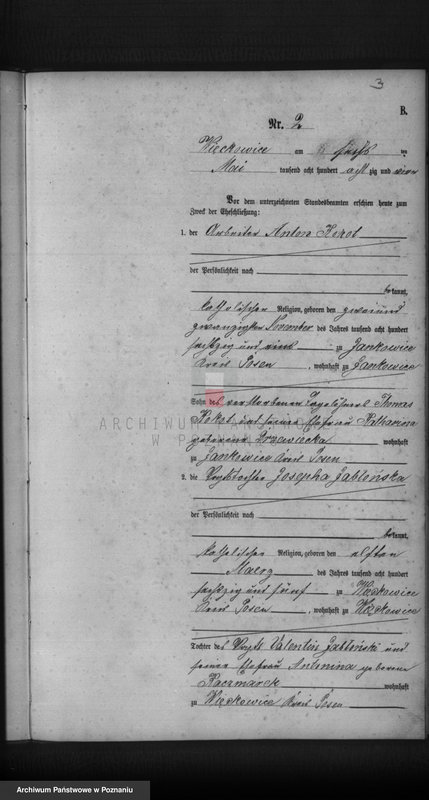 3
B.
Nr. 2
Więckowice am fünf ten
Mai tausend acht hundert acht zig und vier
Vor dem unterzeichneten Standesbeamten erschien heute zum
Zweck der Eheschließung:
1. der Arbeiter Anton
der Persönlichkeit nach
bekannt,
katholischer Religion, geboren den zwei und
zwanzigsten November des Jahres tausend acht hundert
sechszig und eins zu Jankowice
Kreis Posen, wohnhaft zu Jankowice
Sohn des verstorbenen Tagelöhners Thomas
und seiner Ehefrau Katharina
geborene wohnhaft
ARCHIWUM
W P
zu Jankowice Kreis Posen
2. die Vogtstochter Josepha Jabłońska
der Persönlichkeit nach
bekannt,
katholischer Religion, geboren den elften
Maerz des Jahres tausend acht hundert
sechszig und fünf zu Więckowice
Kreis Posen, wohnhaft zu Więckowice
Tochter des Vogts Valentin Jabłoński und
seiner Ehefrau Antonina geborene
Kaczmarek wohnhaft
zu Więckowice Kreis Posen
Archiwum Państwowe w Poznaniu